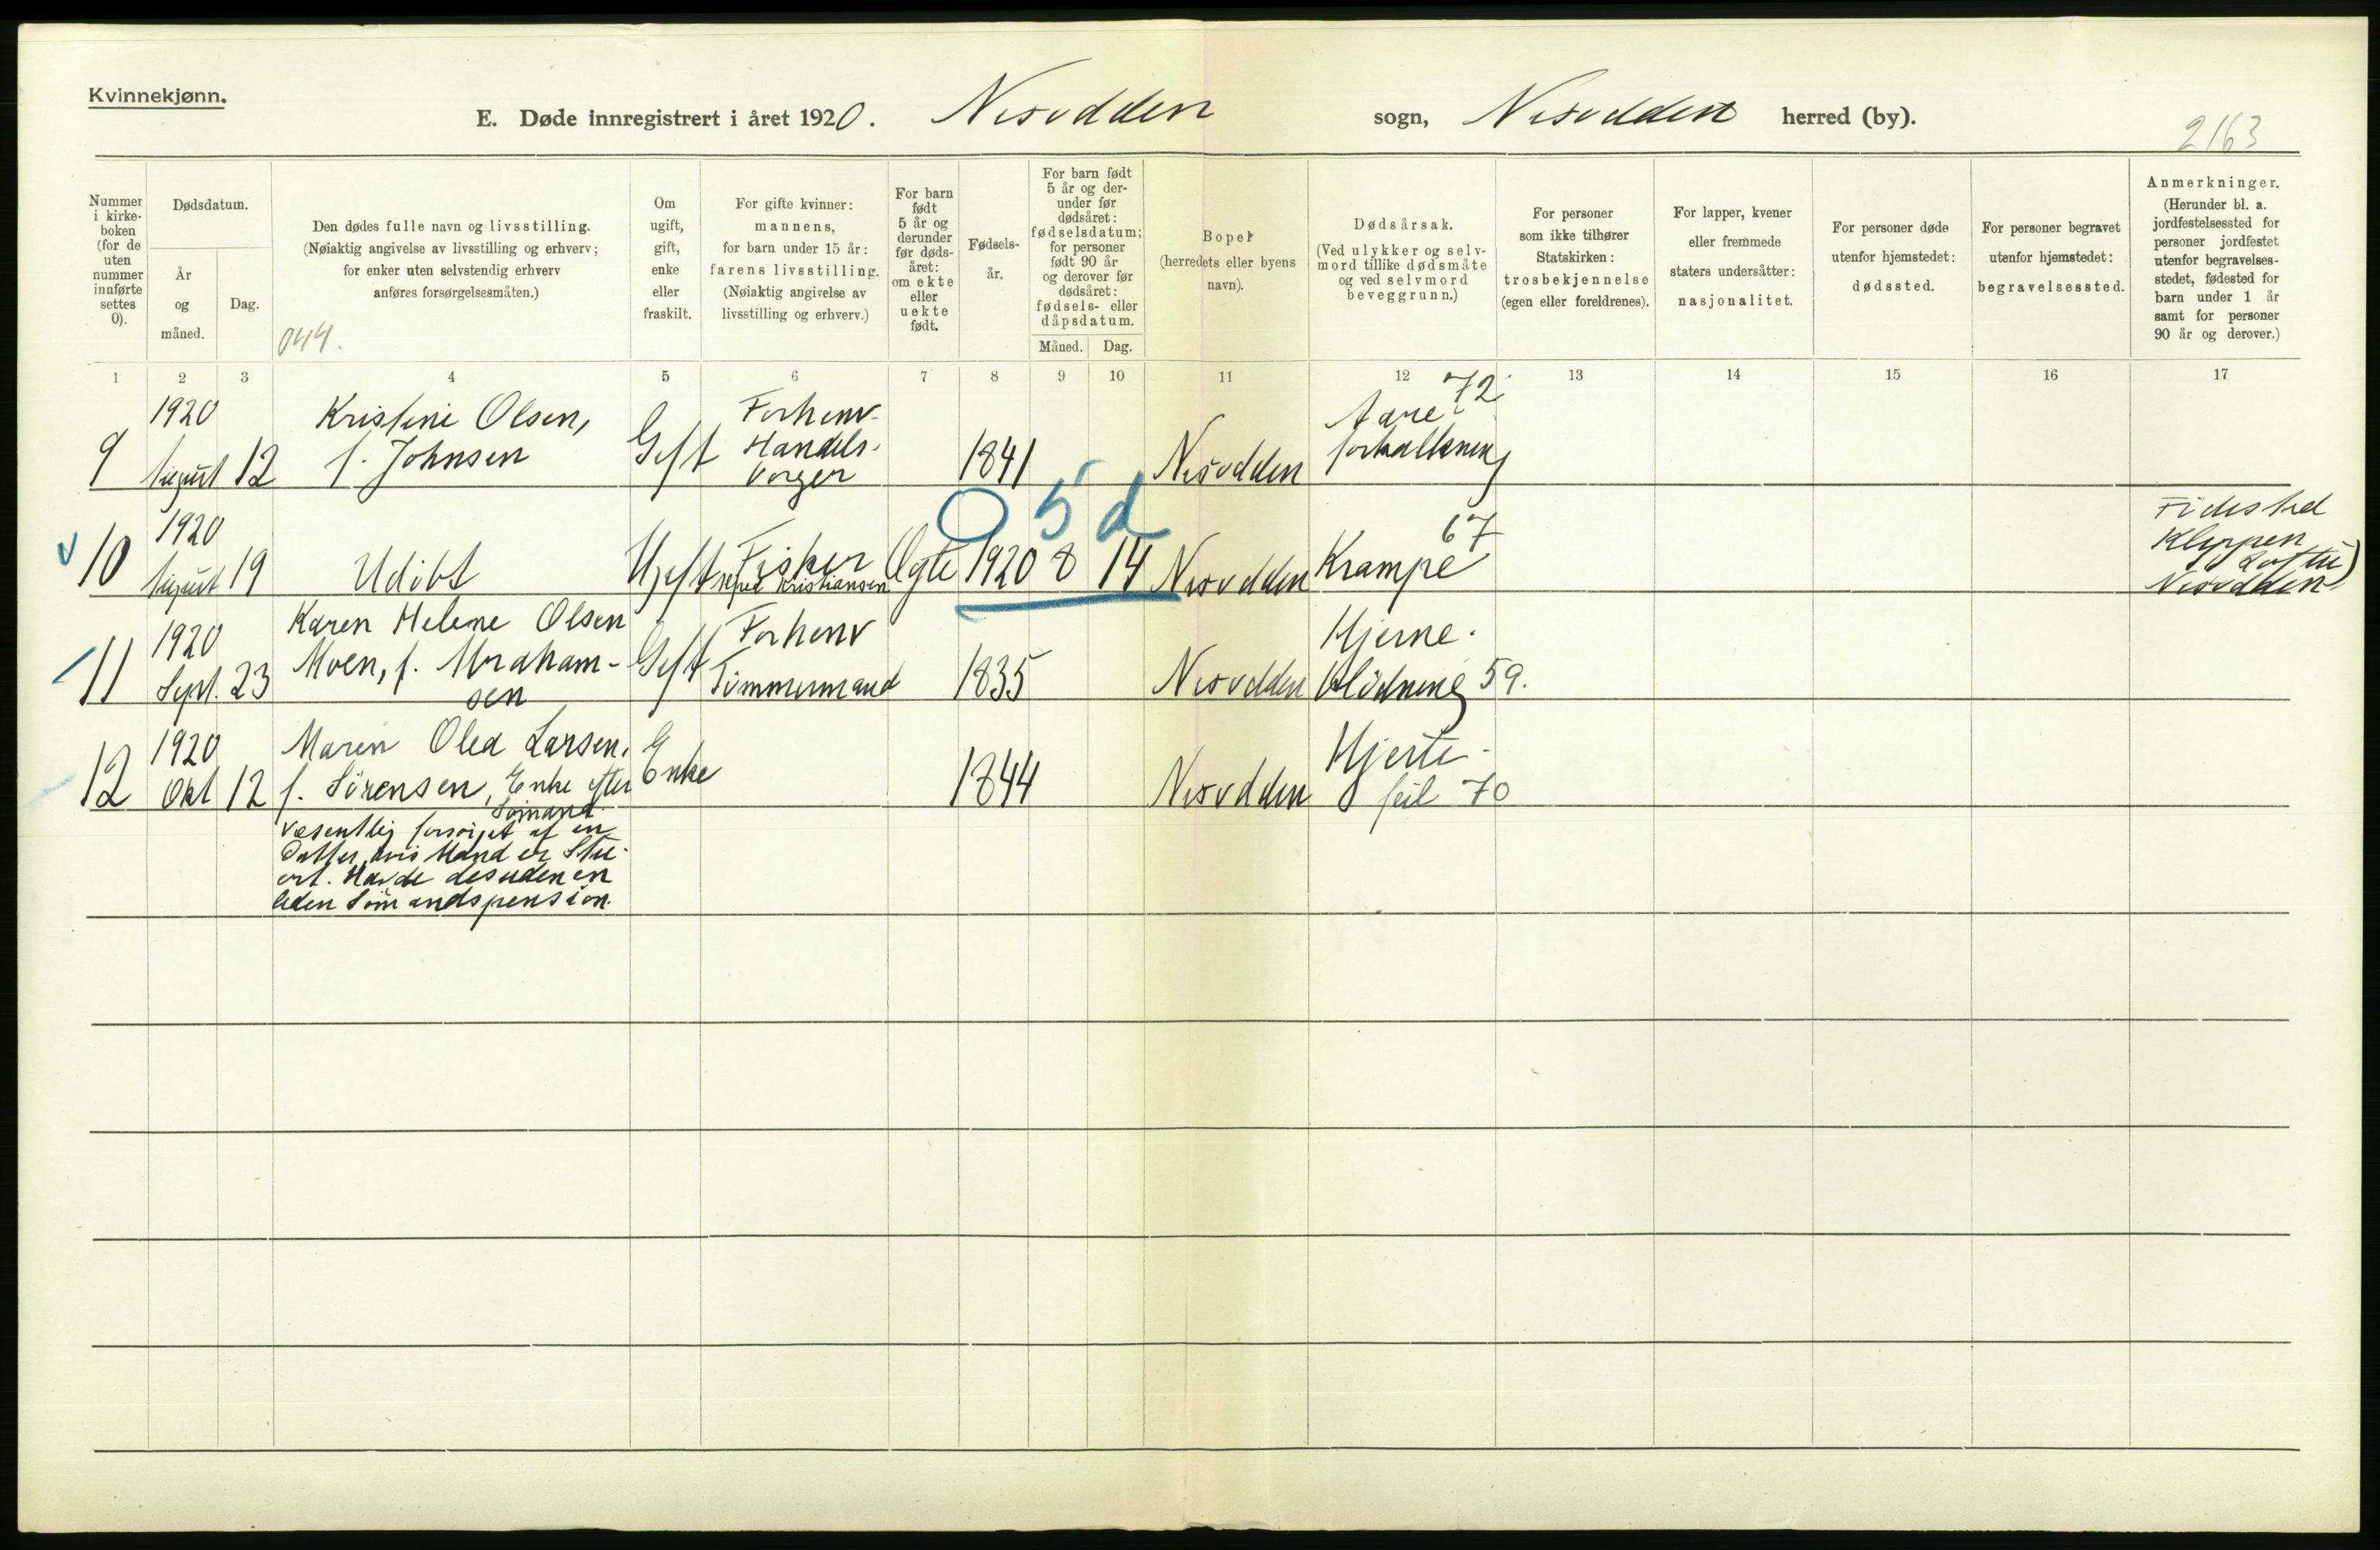 Kvinnekjønn.
E. Døde innregistrert i året 1920. Nesodden sogn, Nesodden herred (by).
2163
Nummer i kirke- boken (for de uten nummer innførte settes 0).
Dødsdatum.
År og måned.
Dag.
Den dødes fulle navn og livsstilling.
(Nøiaktig angivelse av livsstilling og erhverv;
for enker uten selvstendig erhverv
anføres forsørgelsesmåten.)
044.
Om ugift, gift, enke eller fraskilt.
For gifte kvinner:
mannens,
for barn under 15 år:
farens livsstilling.
(Nøiaktig angivelse av
livsstilling og erhverv.)
For barn født 5 år og derunder før døds- året: om ekte eller uekte født.
Fødsels- år.
For barn født 5 år og der- under før dødsåret: fødselsdatum; for personer født 90 år og derover før dødsåret: fødsels- eller dåpsdatum.
Måned. Dag.
Bopel
(herredets eller byens
navn).
Dødsårsak.
(Ved ulykker og selv-
mord tillike dødsmåte
og ved selvmord
beveggrunn.)
For personer
som ikke tilhører
Statskirken:
trosbekjennelse
(egen eller foreldrenes).
For lapper, kvener
eller fremmede
staters undersåtter:
nasjonalitet.
For personer døde
utenfor hjemstedet:
dødssted.
For personer begravet
utenfor hjemstedet:
begravelsessted.
Anmerkninger.
(Herunder bl. a.
jordfestelsessted for
personer jordfestet
utenfor begravelses-
stedet, fødested for
barn under 1 år
samt for personer
90 år og derover.)
1 2 3 4 5 6 7 8 9 10 11 12 13 14 15 16 17
9
1920
August 12
Kristine Olsen,
f. Johnsen
Gift
Forhenv.
Handels-
borger
1841
Nesodden
Aare- 72
forkalkning
0 5 d
10
1920
August 19
Udöbt
Ugift
Fisker
Kristiansen
Ægte
1920 8 14
Nesodden
Krampe 67
Födested
Klyppen
Nesodden
11
1920
Sept. 23
Karen Helene Olsen
Moen, f. Abraham-
sen
Gift
Forhenv
Tömmermand
1835
Nesodden
Hjerne-
blödning 59.
12
1920
Okt 12
Maren Olea Larsen,
f. Sörensen, Enke efter
Sömand
Væsentlig forsörget af en
Datter, hvis Mand er Stu-
ert. Havde desuden en
liden Sömandspension.
Enke
1844
Nesodden
Hjerte-
feil 70